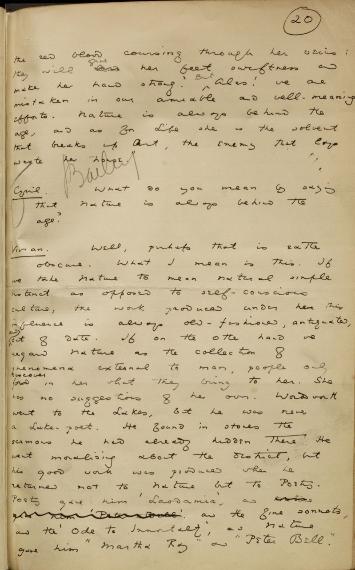 20
the red blood coursing through her veins:
they will give her feet swiftness and
make her hand strong. But Alas! we are
mistaken in our amiable and well-meaning
efforts. Nature is always behind the
age, and as for Life she is the solvent
that breaks up Art, the enemy that lays
waste her house.
Cyril. What do you mean by saying
that Nature is always behind the
age?
Vivian. Well, perhaps that is rather
obscure. What I mean is this. If
we take Nature to mean natural simple
instinct as opposed to self-conscious
culture, the work produced under this
influence is always old-fashioned, antiquated,
and out of date. If on the other hand we
regard Nature as the collection of
phenomena external to man, people only
discover in her what they bring to her. She
has no suggestions of her own. Wordsworth
went to the Lakes, but he was never
a Lake-poet. He found in stones the
sermons he had already hidden there. He
went moralising about the district, but
his good work was produced when he
returned not to Nature but to Poetry.
Poetry gave him 'Laodamia', and the fine sonnets,
and the 'Ode to Immortality', as Nature
gave him "Martha Ray" and "Peter Bell."